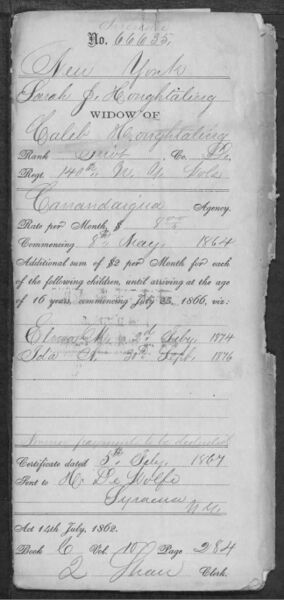 No. 66635.
New York
Sarah J. Houghtaling
WIDOW OF
Caleb Houghtaling
Rank Privt, Co. "D"
Regt. 140th N. Y. Vols
Canandaigua Agency.
Rate per Month, $ 8 00/100
Commencing 8th May, 1864
Additional sum of $2 per Month for each
of the following children, until arriving at the age
of 16 years, commencing July 25, 1866, viz:
M. 2d July, 1874
30th Sept, 1876
payment to be deducted
Certificate dated 5th July, 1867
Sent to H. De Wolfe
Syracuse
N.Y.
Act 14th July, 1862.
Book C Vol. 10 Page 284
Clerk.